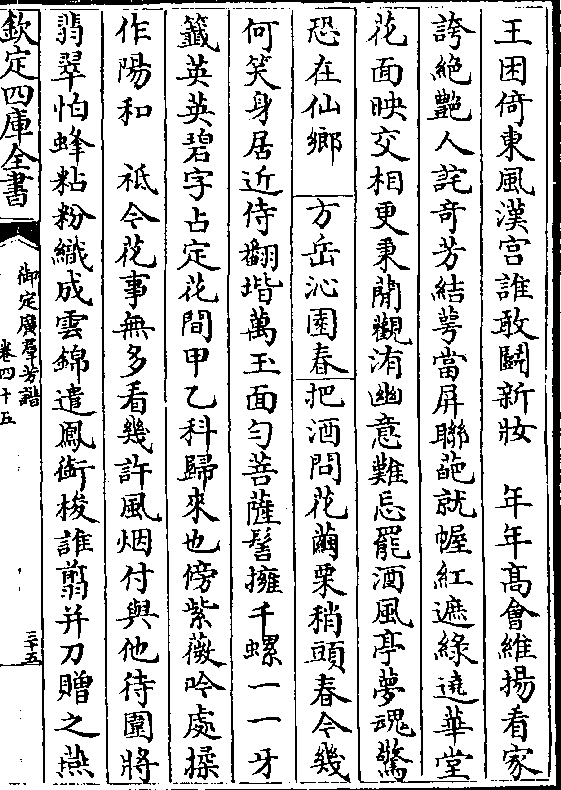 王困倚東風漢宫誰敢鬭新妝　年年髙會維揚看家
誇絶艷人詫奇芳結蕚當屏聯葩就幄紅遮綠遶華堂
花面映交相更秉蕑觀洧幽意難忘罷酒風亭夢魂驚
恐在仙鄉　方岳沁園春把酒問花繭栗梢頭春今幾
何笑身居近侍翻堦萬玉面勻菩薩髻擁千螺一一牙
籤英英碧字占定花間甲乙科歸來也傍紫薇吟處揉
作陽和　祗今花事無多看幾許風烟付與他待圍將
翡翠怕蜂粘粉織成雲錦遣鳳銜梭誰剪并刀贈之燕
欽定四庫全書
御定廣羣芳譜
卷四十五
三十五